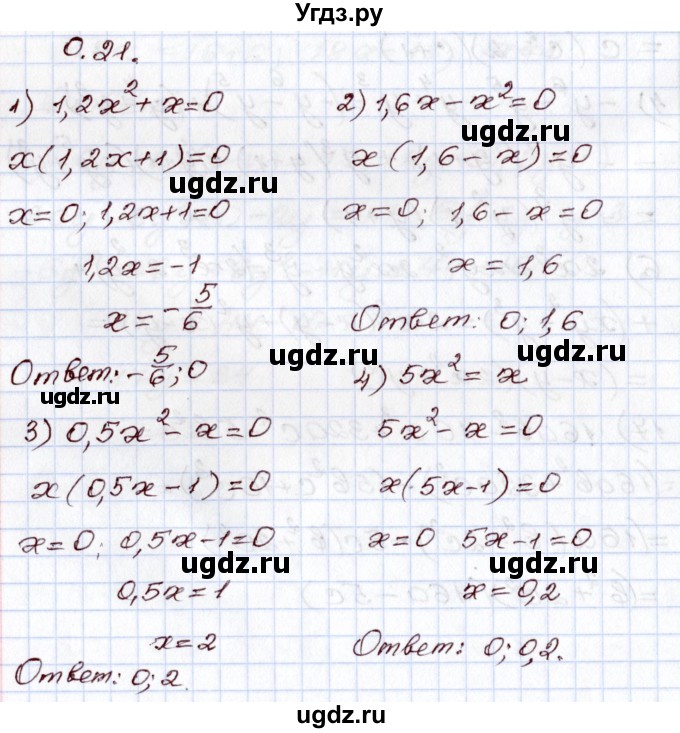 Угдз.ру
0.21.
1) 1,2x²+x=0
x(1,2x+1)=0
x=0; 1,2x+1=0
1,2x=-1
x=-5/6
Ответ: -5/6; 0
2) 1,6x-x²=0
x(1,6-x)=0
x=0; 1,6-x=0
x=1,6
Ответ: 0; 1,6
3) 0,5x²-x=0
x(0,5x-1)=0
x=0; 0,5x-1=0
0,5x=1
x=2
Ответ: 0; 2.
4) 5x²=x
5x²-x=0
x(5x-1)=0
x=0 5x-1=0
x=0,2
Ответ: 0; 0,2.
ugdz.ru
ugdz.ru
ugdz.ru
ugdz.ru
ugdz.ru
ugdz.ru
ugdz.ru
ugdz.ru
ugdz.ru